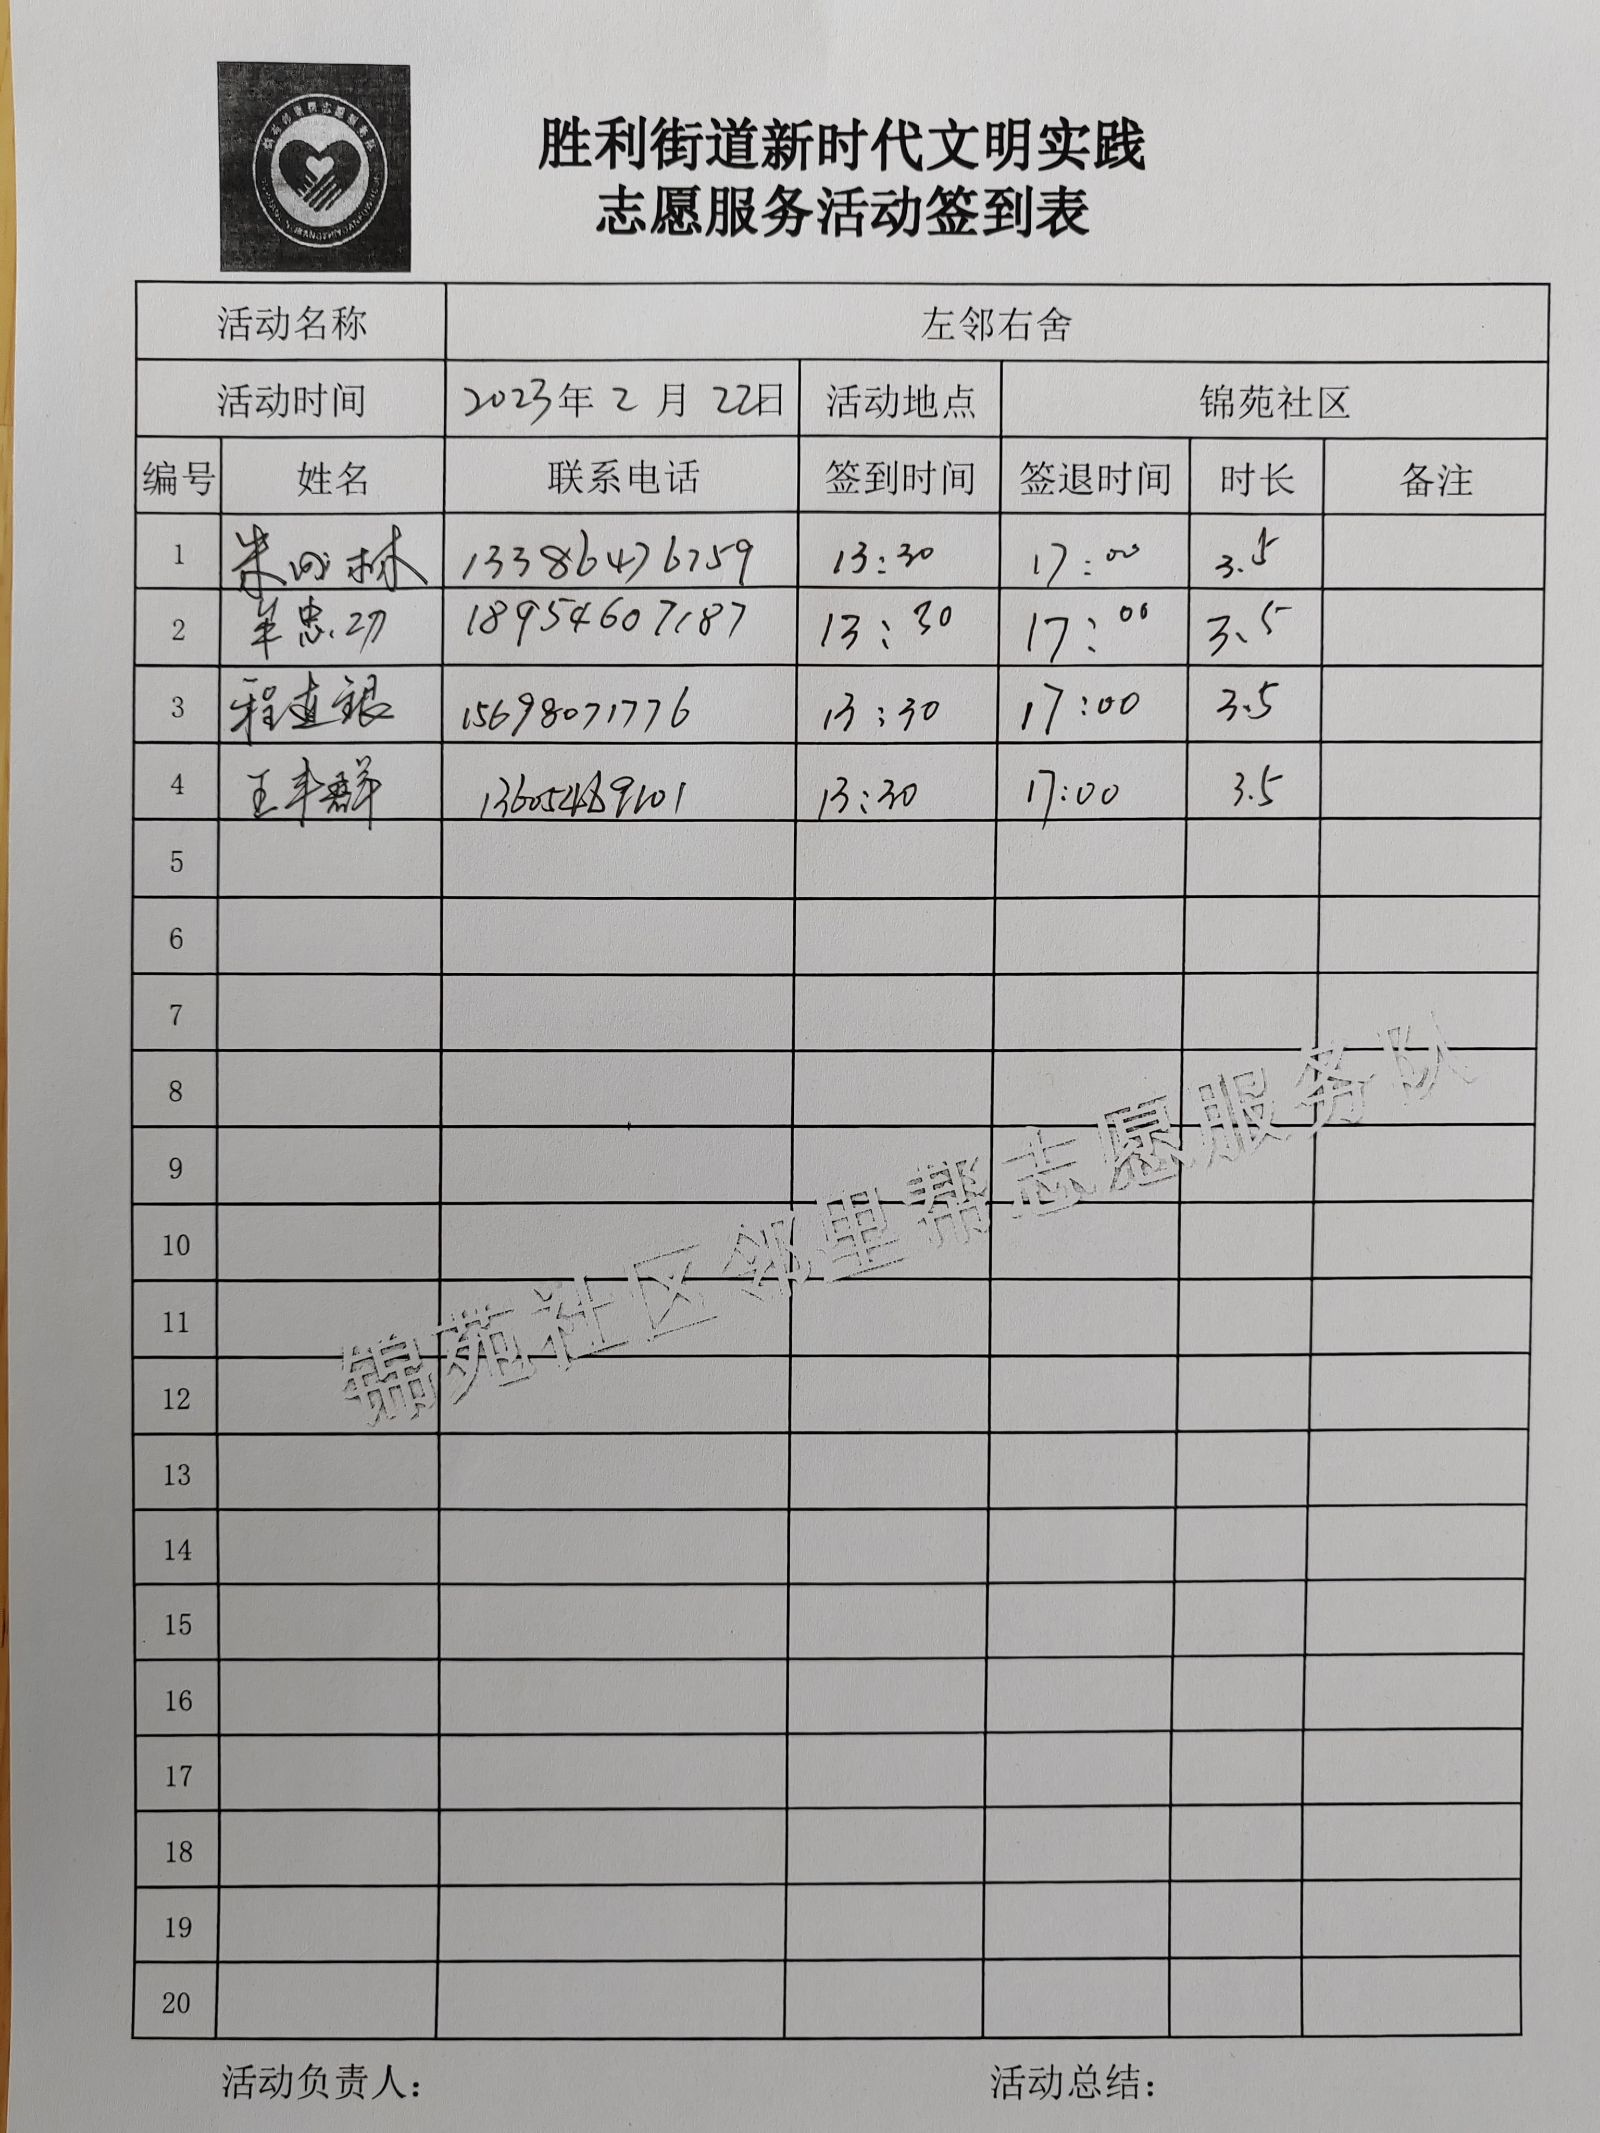 胜利街道新时代文明实践
志愿服务活动签到表
活动名称 左邻右舍
活动时间 2023年 2 月 22日 活动地点 锦苑社区
编号 姓名 联系电话 签到时间 签退时间 时长 备注
1 林 13386476759 13:30 17:00 3.5
2 忠功 18954607187 13:30 17:00 3.5
3 程建银 15698071776 13:30 17:00 3.5
4 王丰群 13:30 17:00 3.5
5
6
7
8
9
10
11
12
13
14
15
16
17
18
19
20
锦苑社区邻里帮志愿服务队
活动负责人： 活动总结：